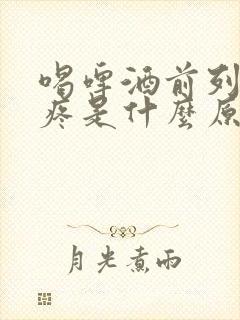 喝啤酒前列
疼是什麼原
月光煮雨